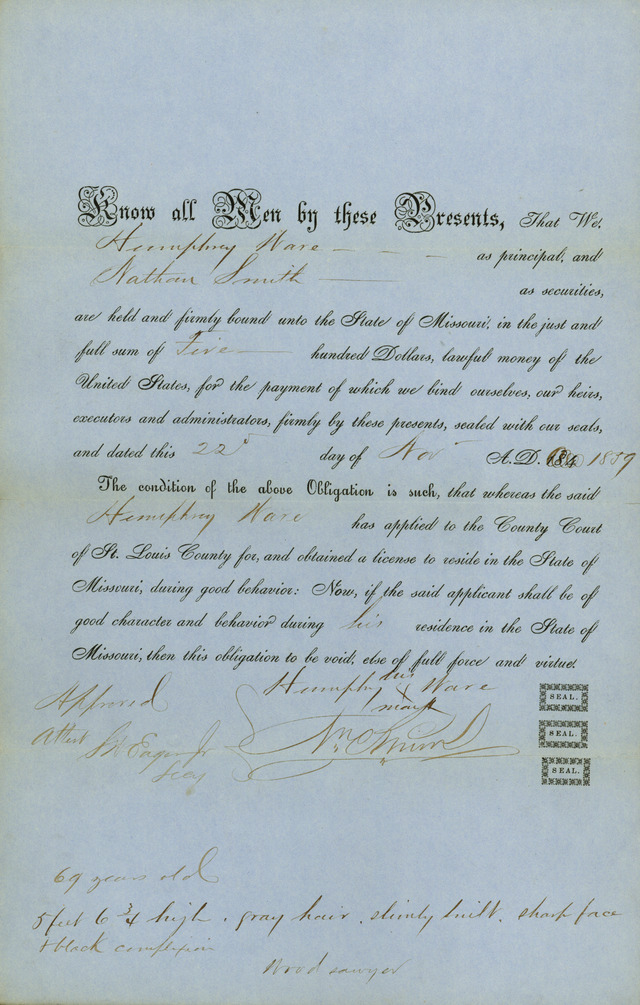 Know all Men by these Presents, That We,
Humphrey Ware as principal, and
Nathan Smith as securities,
are held and firmly bound unto the State of Missouri, in the just and
full sum of Five hundred Dollars, lawful money of the
United States, for the payment of which we bind ourselves, our heirs,
executors and administrators, firmly by these presents, sealed with our seals,
and dated this 22d day of Nov A.D. 1859
The condition of the above Obligation is such, that whereas the said
Humphrey Ware has applied to the County Court
of St. Louis County for, and obtained a license to reside in the State of
Missouri, during good behavior: Now, if the said applicant shall be of
good character and behavior during his residence in the State of
Missouri, then this obligation to be void, else of full force and virtue.
Humphy his X mark Ware SEAL.
Approved
SEAL.
Attest
SEAL.
69 years old
5 feet 6 3/4 high. gray hair. slimly built. sharp face
+ black complexion
Wood sawyer